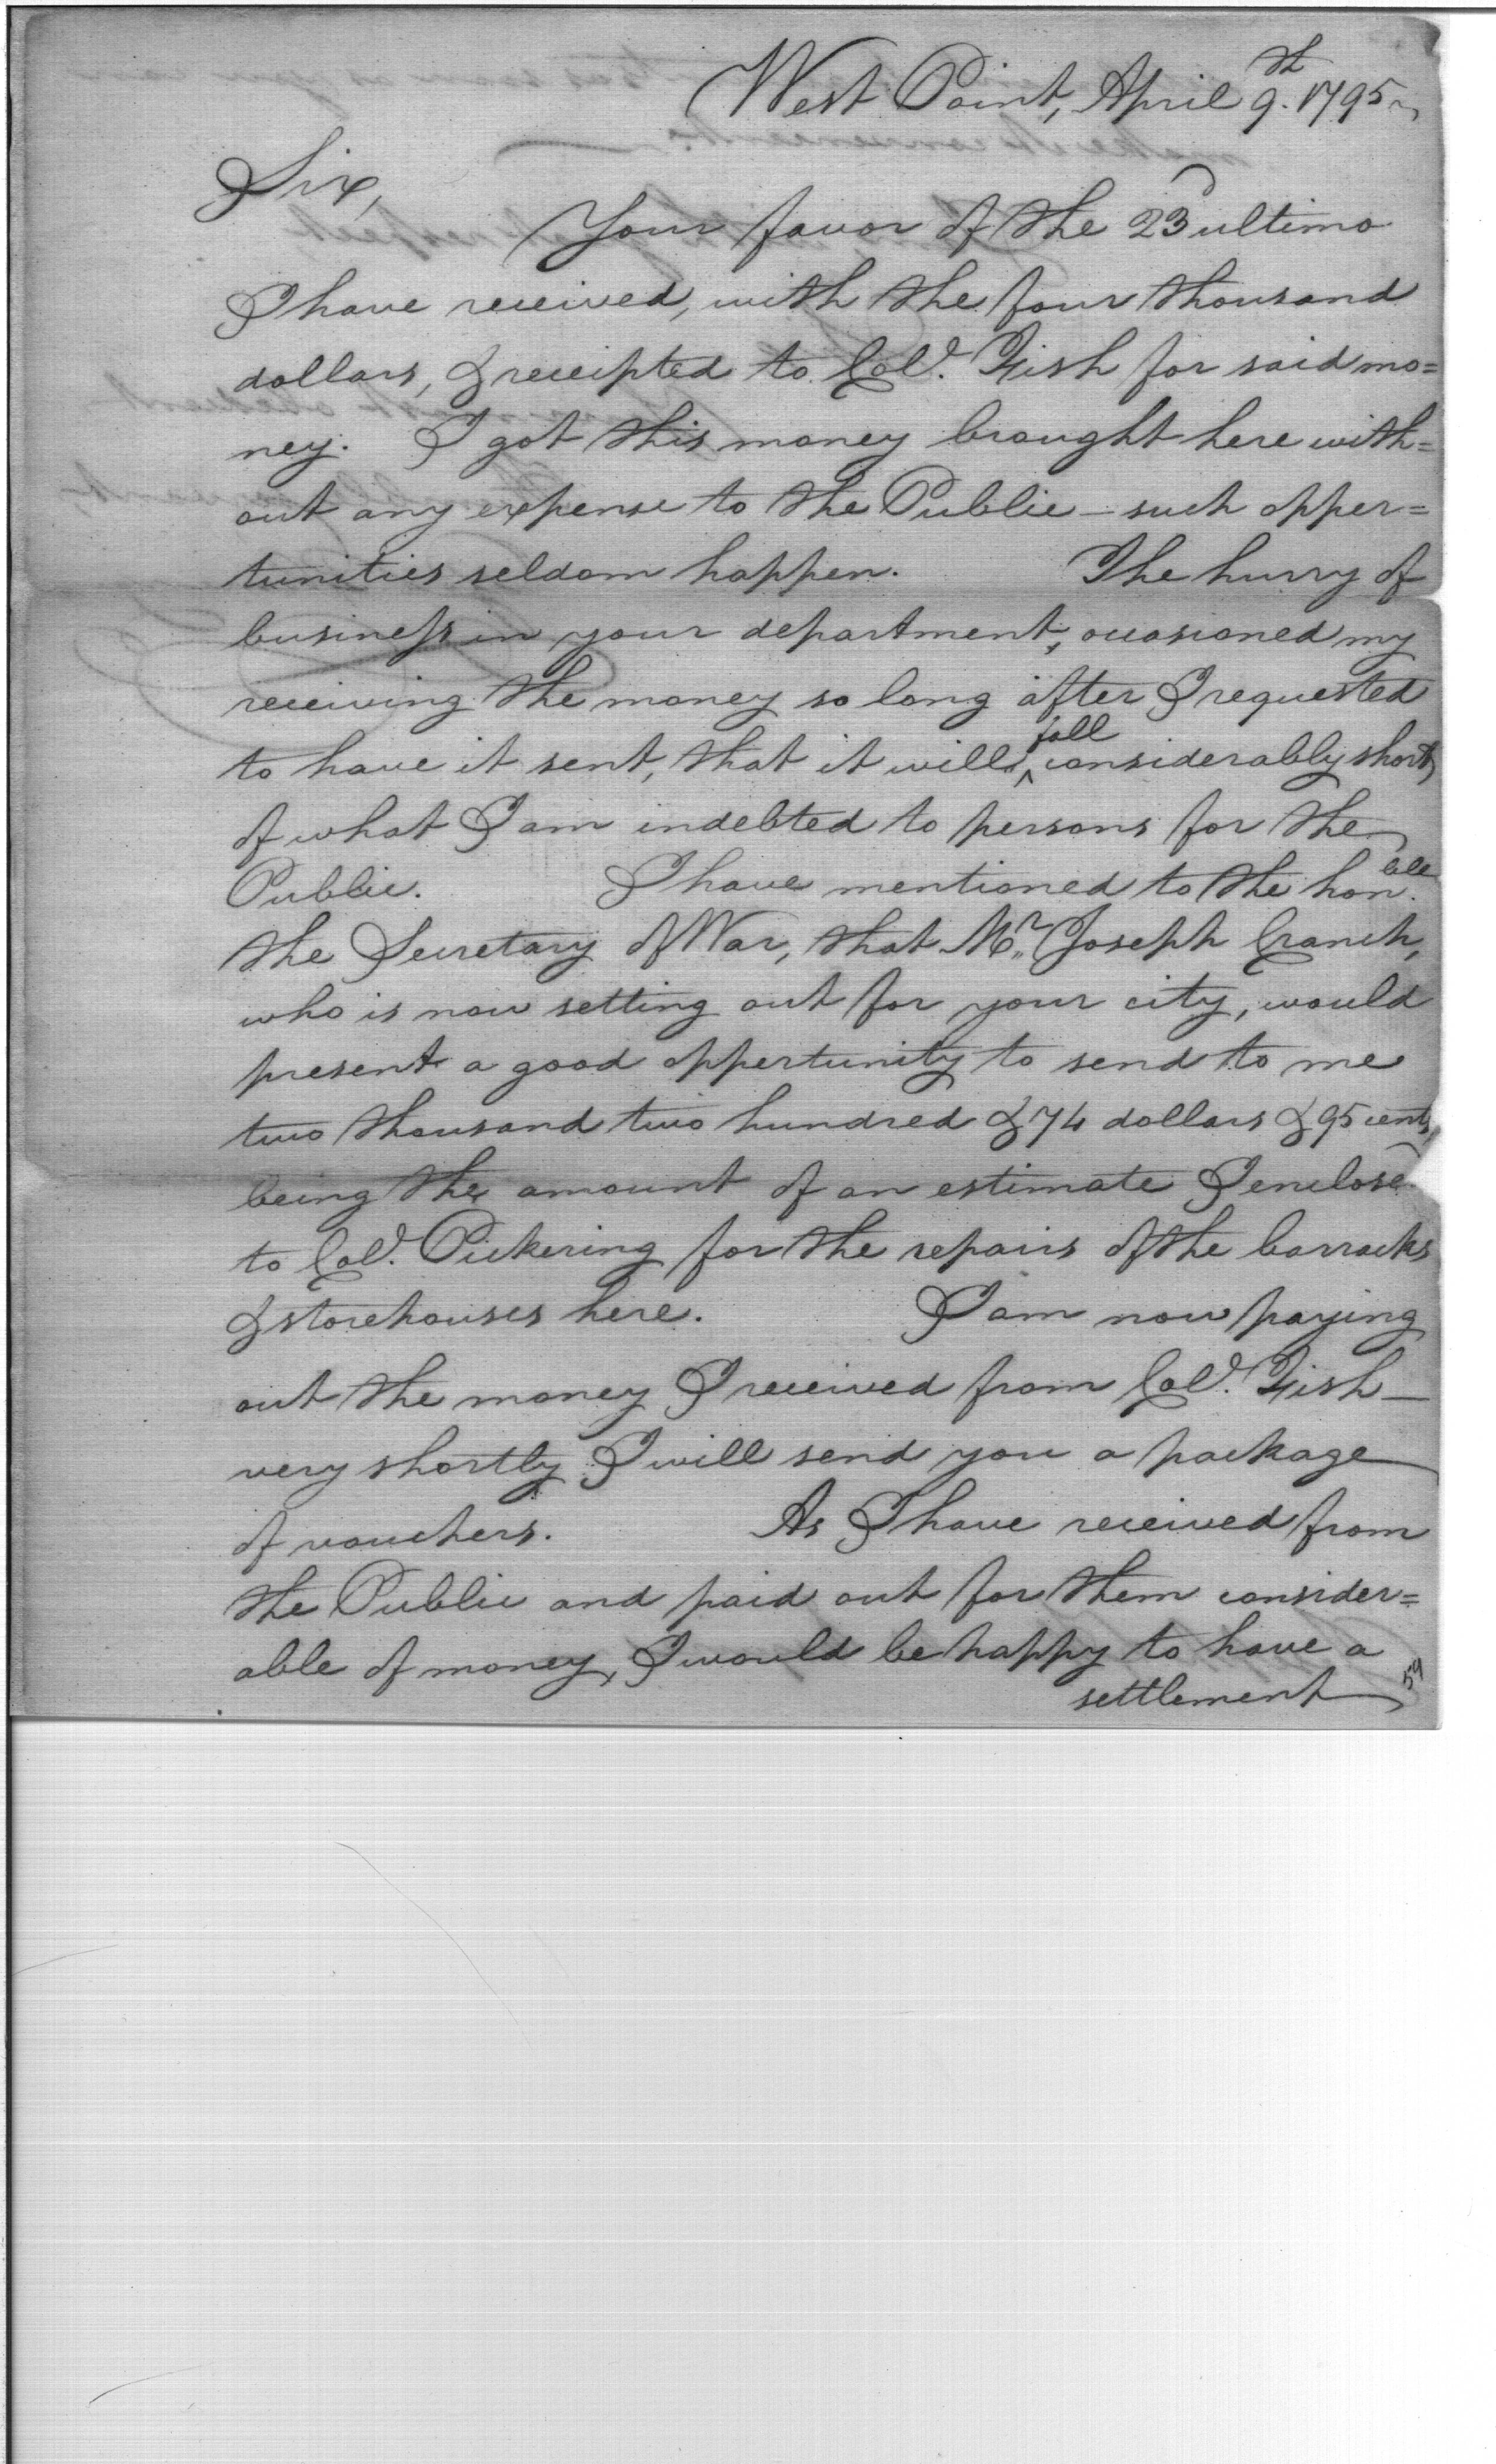 West Point, April 9.th 1795
Sir,
Your favor of the 23d ultimo
I have received, with the four thousand
dollars, & receipted to Col.o Fish for said mo=
ney. I got this money brought here with=
out any expense to the Public — such opper=
tunities seldom happen. The hurry of
business in your department, occasioned my
receiving the money so long after I requested
to have it sent, that it will, ^fall considerably short
of what I am indebted to persons for the
Public. I have mentioned to the hon.ble
the Secretary of War, that Mr. Joseph Cranch,
who is now setting out for your city, would
present a good oppertunity to send to me
two thousand two hundred & 74 dollars & 95 cents,
being the amount of an estimate I enclosed
to Col.o Pickering for the repairs of the barracks
& storehouses here. I am now paying
out the money I received from Col.o Fish —
very shortly I will send you a package
of vouchers. As I have received from
the Public and paid out for them consider=
able of money, I would be happy to have a
settlement
59